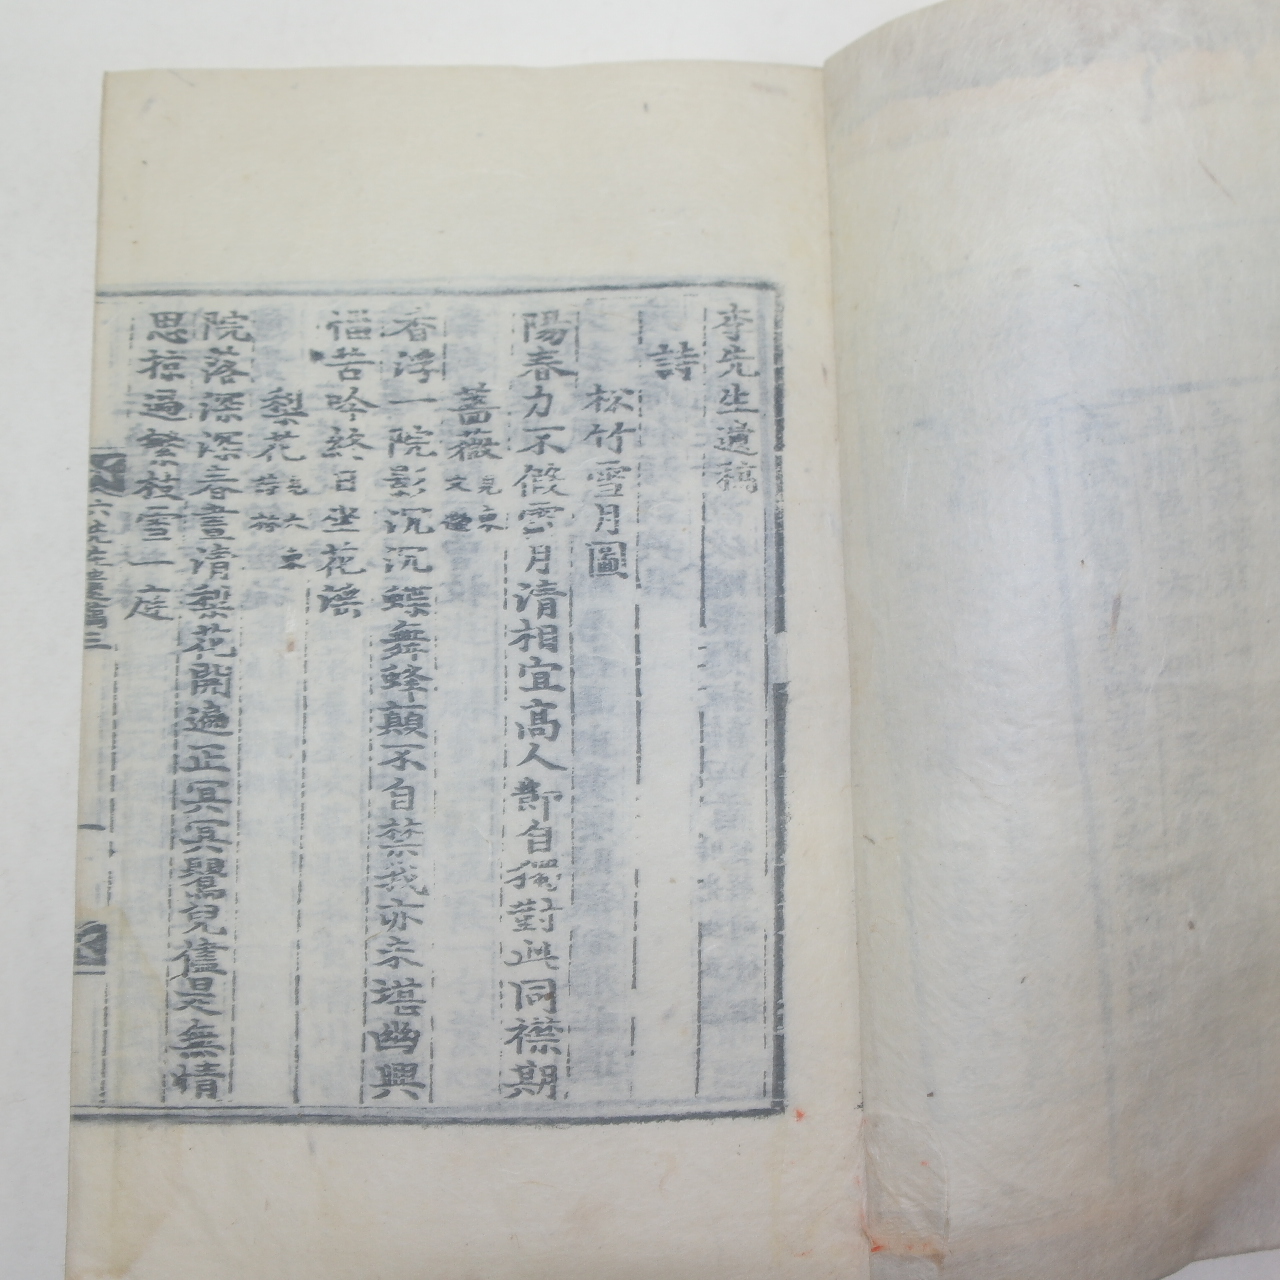 李先生遺稿
詩
松竹雪月圖
陽春力不假雲月清相宜高人鄭自獨對此同襟期
薔薇見東文選
香浮一院影沉沉蝶舞蜂顛不自禁我亦未堪幽興
惱苦吟終日坐花陰
梨花見大東
院落深深春晝清梨花開遍正冥冥鸎兒舊是無情
思掠過繁枝雪一庭
六先生遺稿三 一